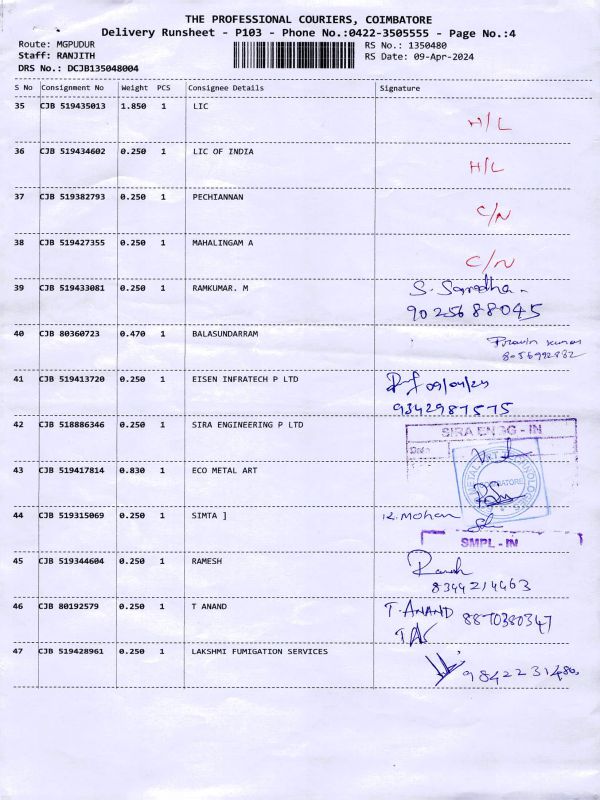 THE PROFESSIONAL COURIERS, COIMBATORE
Delivery Runsheet - P103 - Phone No.:0422-3505555 - Page No.:4
Route: MGPUDUR RS No.: 1350480
Staff: RANJITH RS Date: 09-Apr-2024
DRS No.: DCJB135048004
S No Consignment No Weight PCS Consignee Details Signature
35 CJB 519435013 1.850 1 LIC
H/L
36 CJB 519434602 0.250 1 LIC OF INDIA
H/L
37 CJB 519382793 0.250 1 PECHIANNAN
C/N
38 CJB 519427355 0.250 1 MAHALINGAM A
C/N
39 CJB 519433081 0.250 1 RAMKUMAR. M S.
9025688045
40 CJB 80360723 0.470 1 BALASUNDARRAM
Pravin Kumar
8056992882
41 CJB 519413720 0.250 1 EISEN INFRATECH P LTD 09/04/24
9342987575
42 CJB 518886346 0.250 1 SIRA ENGINEERING P LTD
SIRA ENGG - IN
43 CJB 519417814 0.830 1 ECO METAL ART
COIMBATORE
44 CJB 519315069 0.250 1 SIMTA ] K. Mohan
SMPL - IN
45 CJB 519344604 0.250 1 RAMESH
8344214463
46 CJB 80192579 0.250 1 T ANAND T. ANAND 8870380347
47 CJB 519428961 0.250 1 LAKSHMI FUMIGATION SERVICES